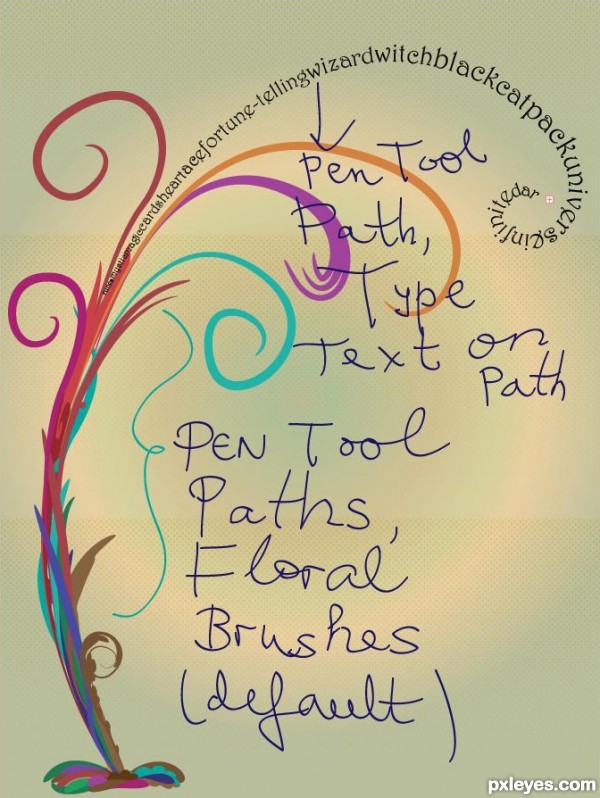 magiccardsheartacefortune-tellingwizardwitchblackcatpackuniverseinfinitedar
Pen Tool
Path,
Type
Text on
Path
PEN Tool
Paths,
Floral
Brushes
(default)
pxleyes.com